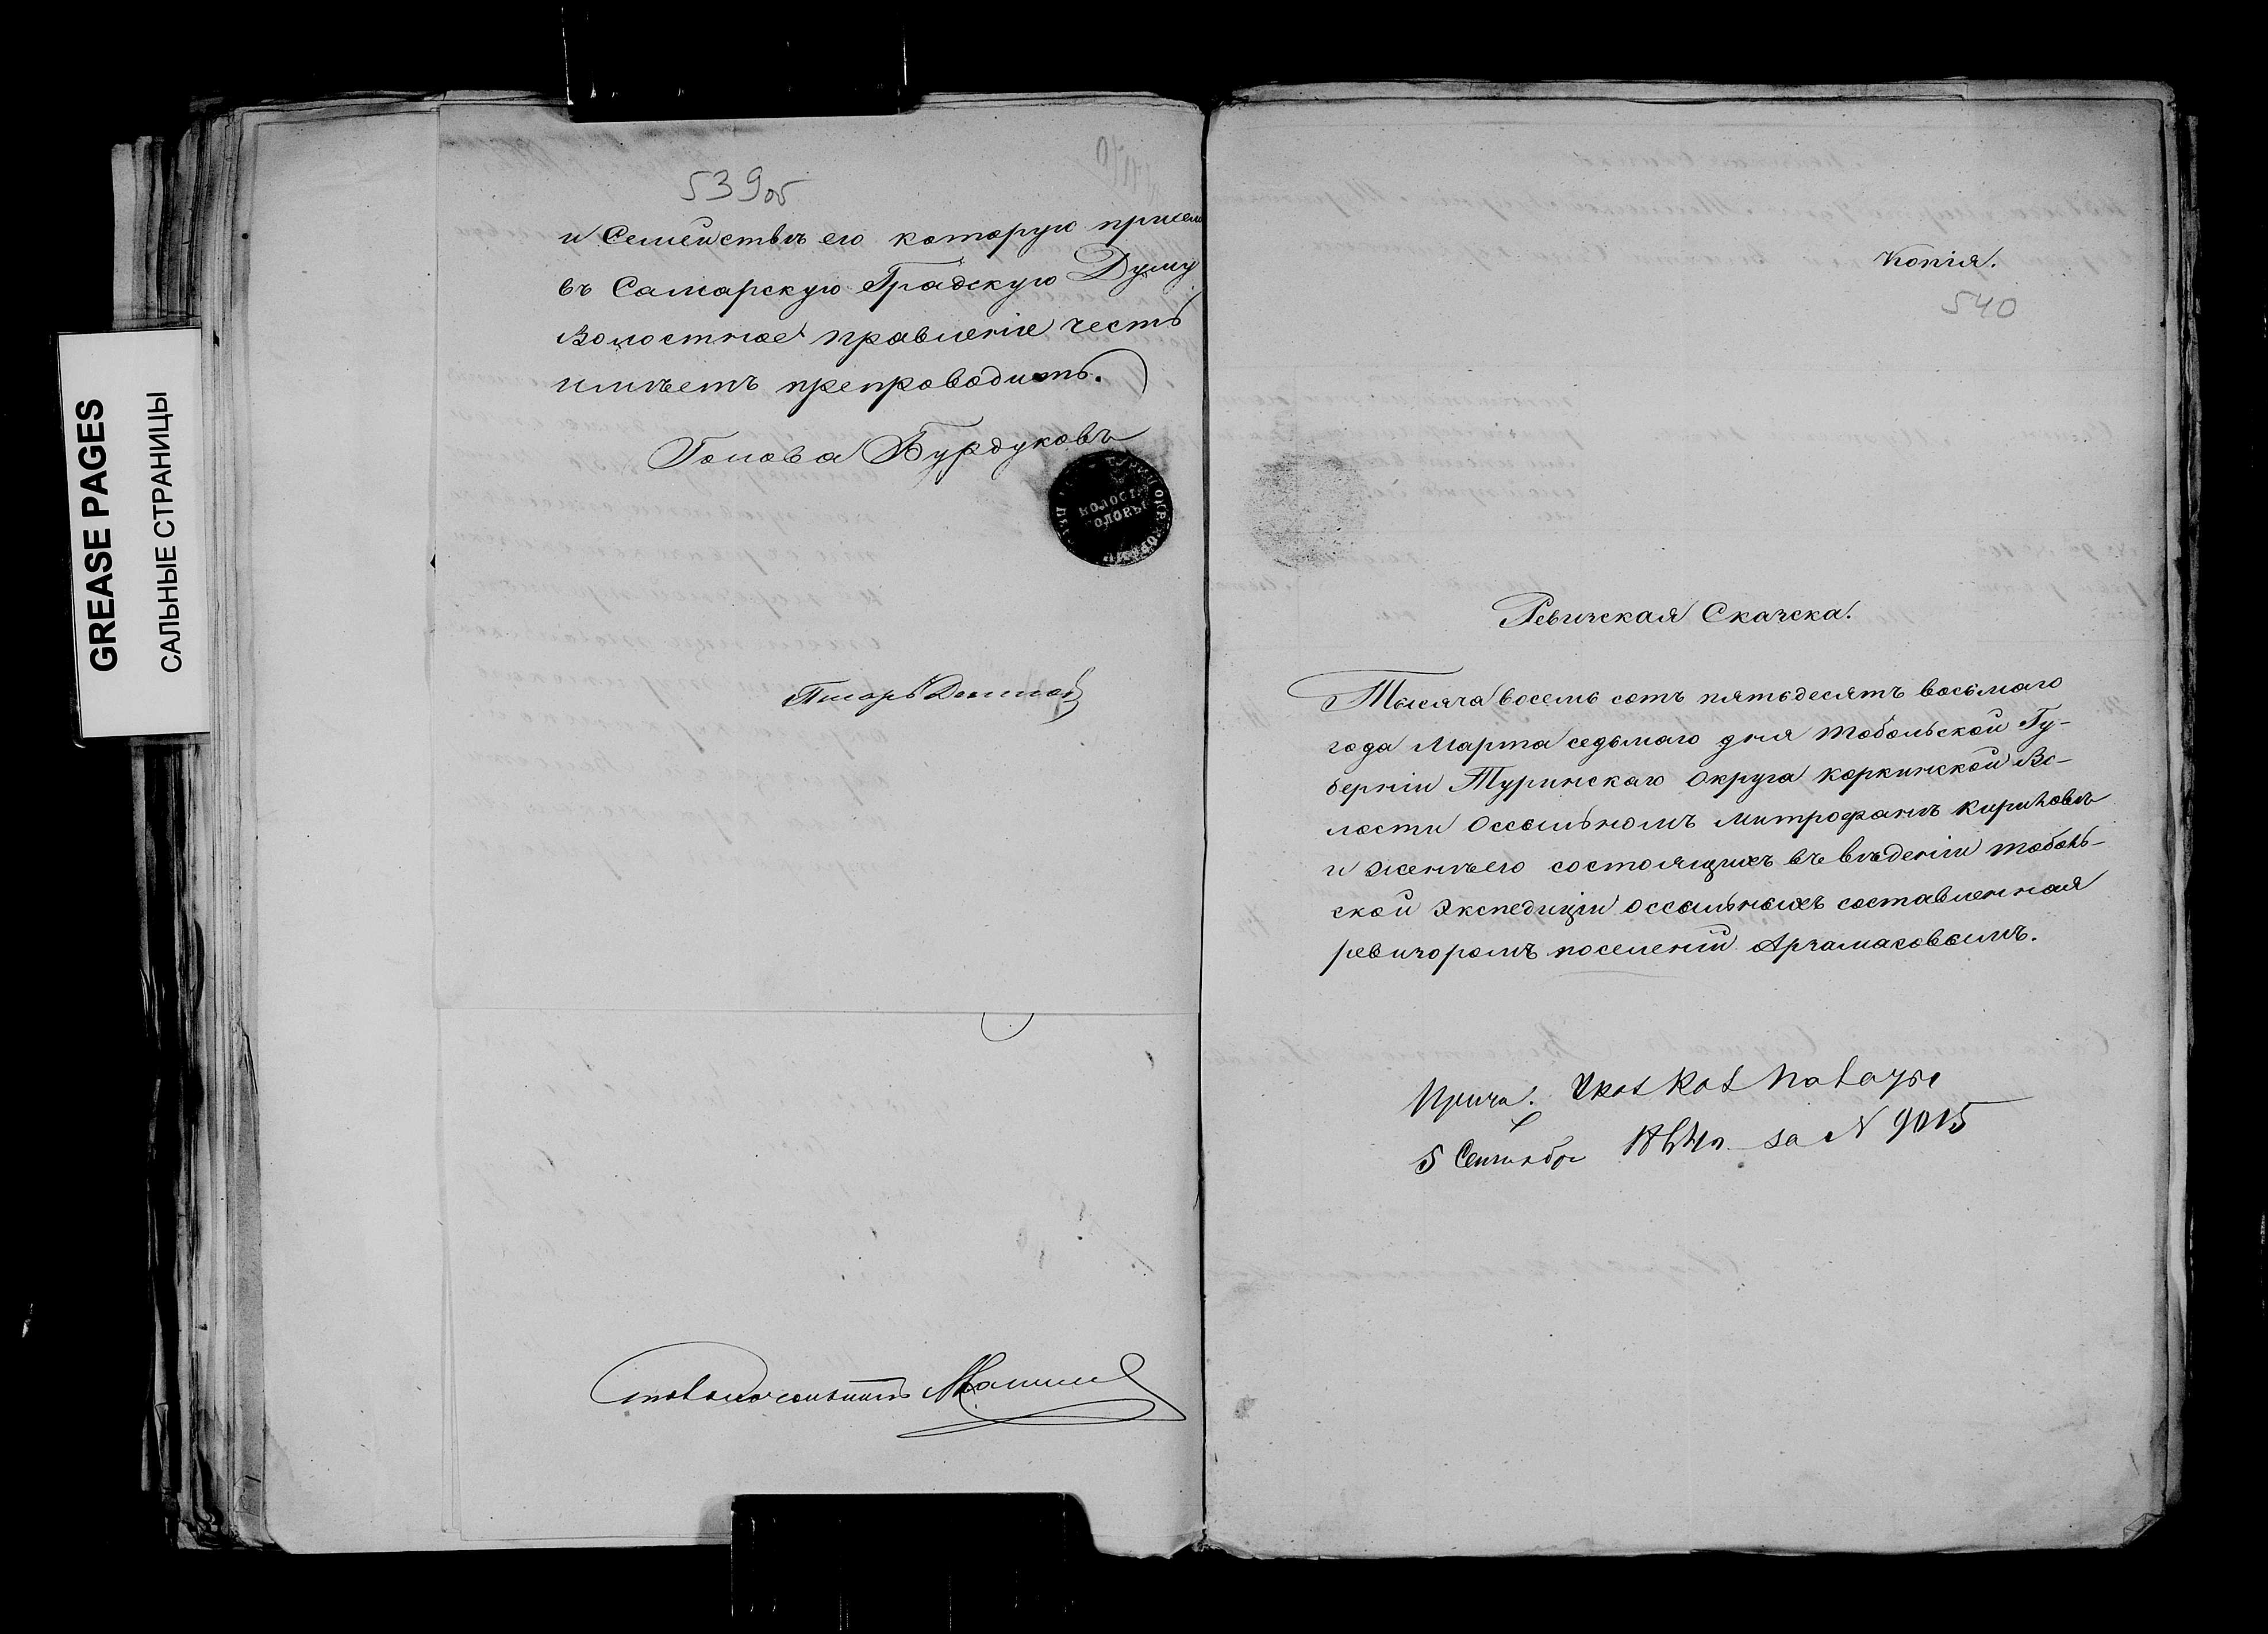 GREASE PAGES
САЛЬНЫЕ СТРАНИЦЫ
539об
и Семействѣ его которую
въ Самарскую Градскую Думу
Волостное правленіе честь
имѣетъ препроводить.
Голова Бурдуковъ
Писарь
Копія.
540
Ревизская Сказска.
Тысяча восемь сотъ пятьдесятъ восьмаго
года Марта седьмаго дня Тобольской Гу-
берніи Туринскаго Округа Коркинской Во-
лости О ссыльномъ Митрофанѣ Кириковѣ
и женѣ его состоящихъ въ вѣденіи Тоболь-
ской Экспедиціи о ссыльныхъ составленная
ревизоромъ поселеній Арзамасовымъ.
5 Сентября за N 9015